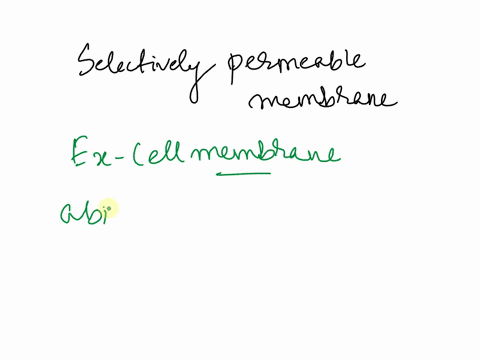 Selectively permeable
membrane
Ex - Cell membrane
abi